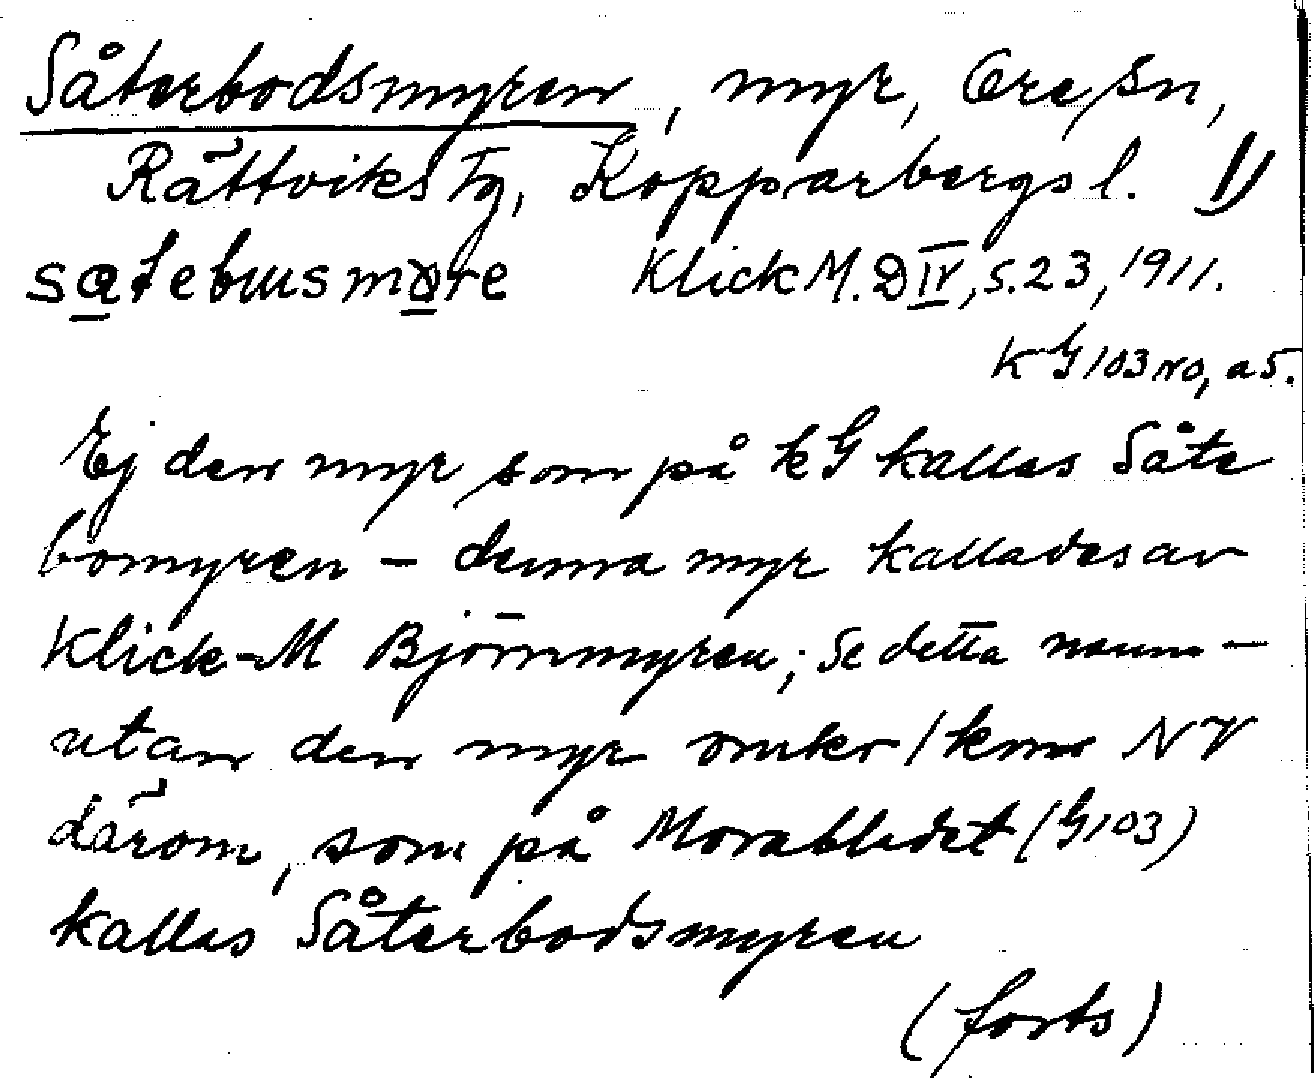 Såterbodsmyren, myr, Ore sn,
Rättviks Tg, Kopparbergs l. 1)
Klick M. D IV, s. 23, 1911.
k G 103 no, a5.
Ej den myr som på k G kallas Såte
bomyren – denna myr kallades av
Klick-M Björnmyren; se detta namn –
utan den myr omkr 1 km NV
därom, som på Morabladet (G103)
kallas Såterbodsmyren
(forts)